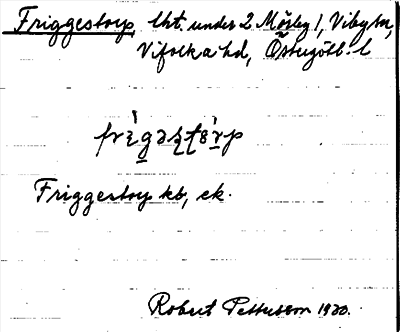 Friggestorp, lht. under 2 Mörby 1, Viby sn,
Vifolka hd, Östergötl. l
Friggestorp kb, ek.
Robert Pettersson 1920.